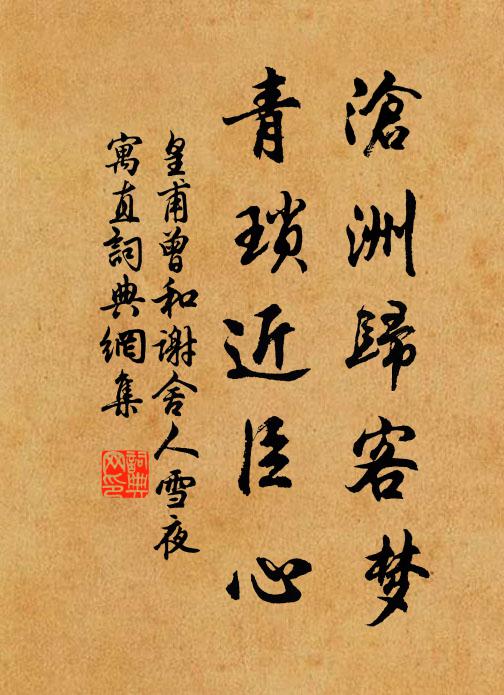 滄洲歸客梦
青瑣近臣心
皇甫曾和谢舍人雪夜
寓直詞典網集
詞典
网印